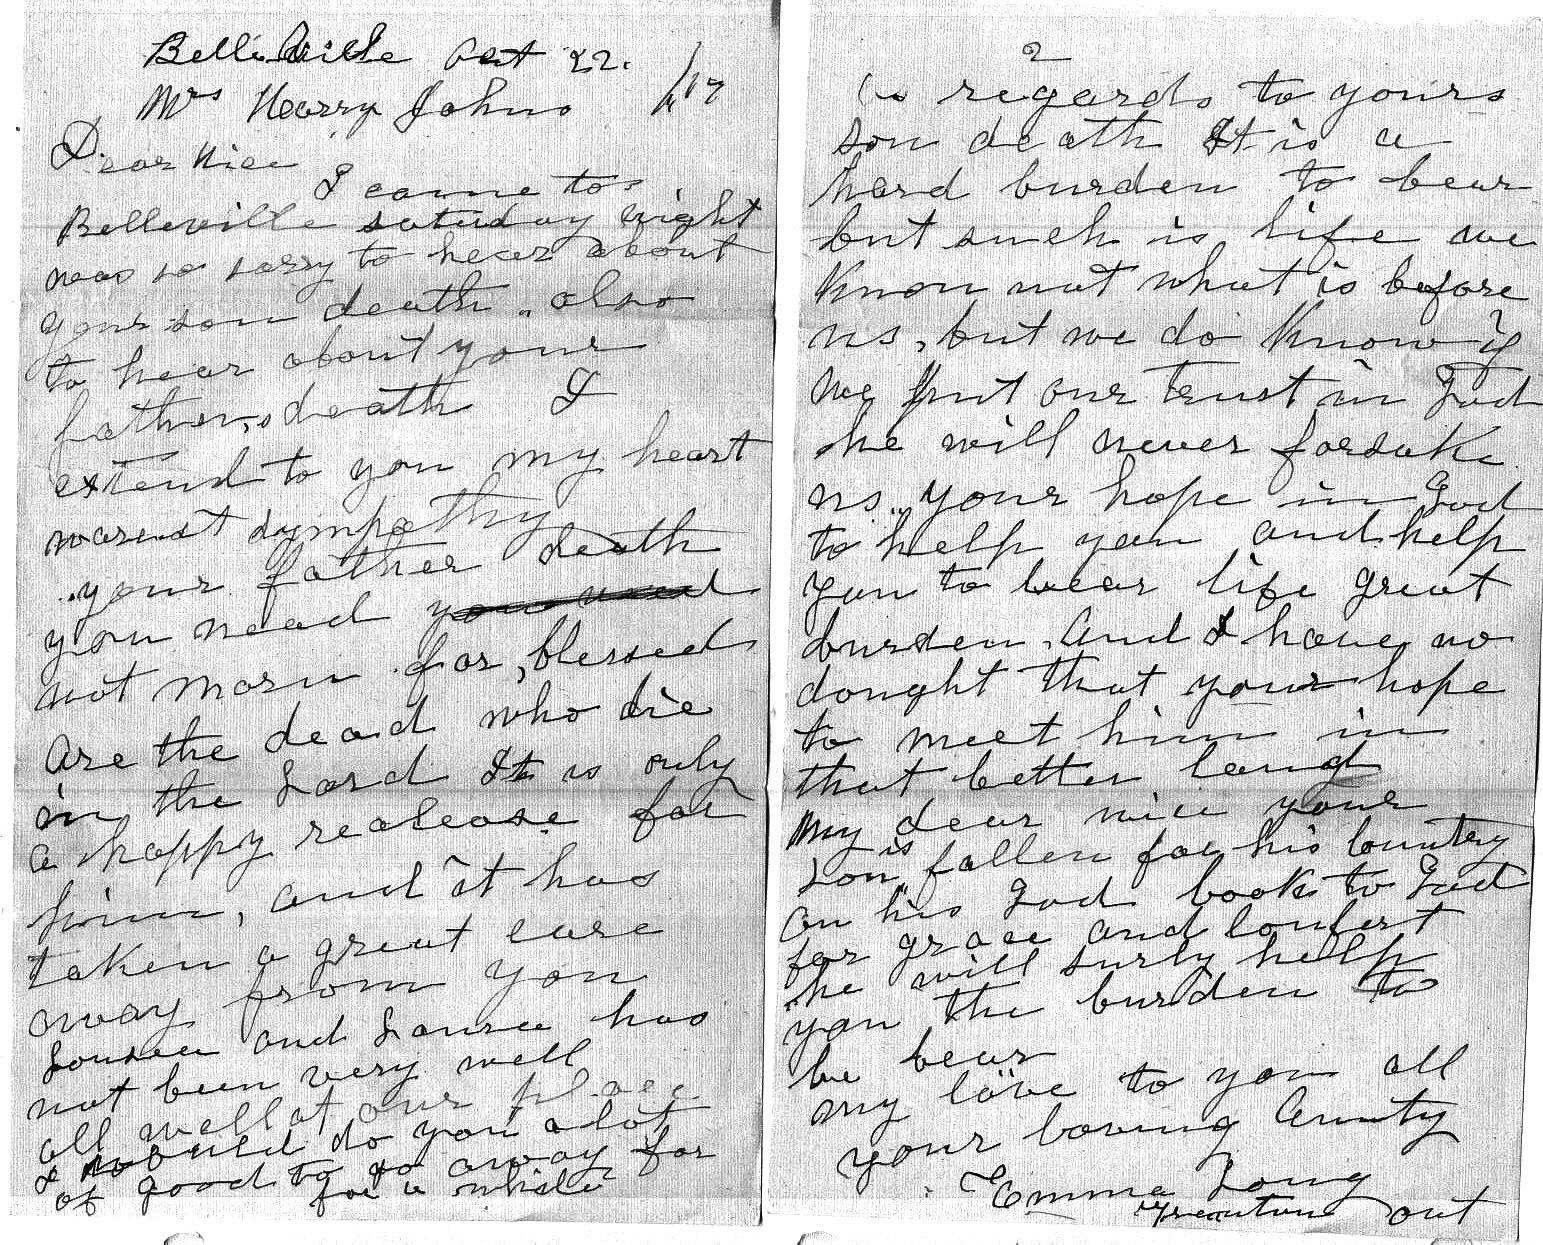 Belleville Oct 22.
Mrs Hearry Johns /17
Dear Nice
I came to
Belleville saturday night
was so sarry to hear about
your son death. also
to hear about your
father,s death I
extend to you my heart
warest sympathy
your father death
you nead you need
not morn for, blessed
are the dead who die
in the Lord It is only
a happy realease for
him, and it has
taken a great care
away from you
Louisea and Laura has
not been very well
all well at our place
I would do you a lot
of good to go away for
for a while
2
in regards to yours
son death It is a
hard burden to bear
but such is life we
know not what is before
us, but we do know if
we put our trust in God
he will never forsake
us. your hope in God
to help you and help
you to bear life great
burden. And I have no
dought that your hope
to meet him in
that better land
My dear nice your
son is fallen for his Country
on his God look to God
for grace and Confert
he will surly help
you the burden to
be bear
my love to you all
your loving Aunty
Emma Long
Trenton ont